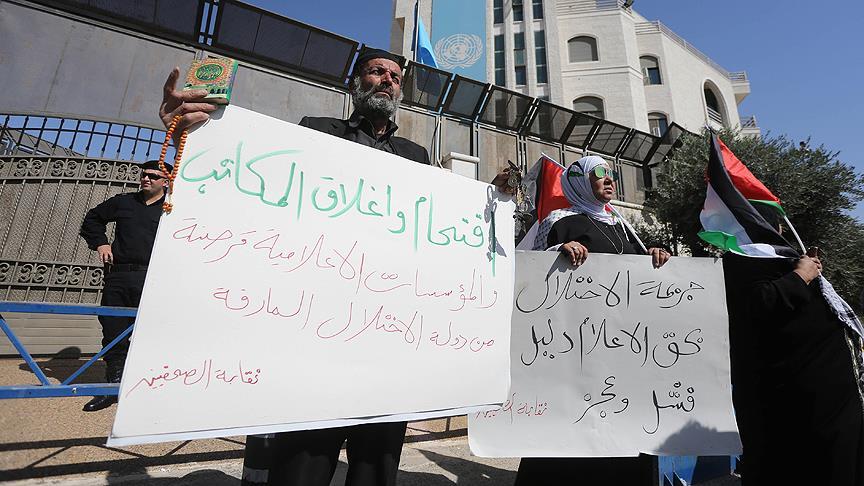 اقتحام واغلاق المكاتب
والمؤسسات الاعلامية قرصنة
من دولة الاحتلال المارقة
نقابة الصحفيين
الاحتلال
بحق الاعلام دليل
فشل وعجز
نقابة